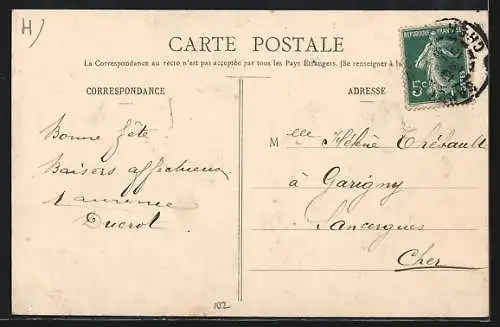 H)
CARTE POSTALE
La Correspondance au recto n'est pas acceptée par tous les Pays Étrangers. (Se renseigner à la
CORRESPONDANCE
ADRESSE
REPUBLIQUE FRANÇAISE
5c
CHER
Bonne fête
Baisers affectueux
Laurence
Ducrot
Melle Hélène Thébault
à Garigny
Sancergues
Cher
102